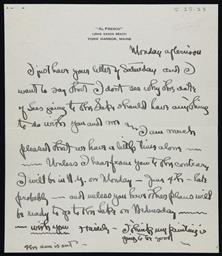 5-29-28
"AL FRESCO"
LONG SANDS BEACH
YORK HARBOR, MAINE
Monday afternoon
I just have your letter of Saturday and I
want to say that I don't see why this date
of Sess going to the Lake should have anything
to do with you and me — I am much
pleased that we have a little time alone —
Unless I hear from you to the contrary
I will be in N.Y. on Monday – June 4th – late
probably – and unless you have other plans will
be ready to go to the Lake on Wednesday —
with you
I think my painting is
going to be good